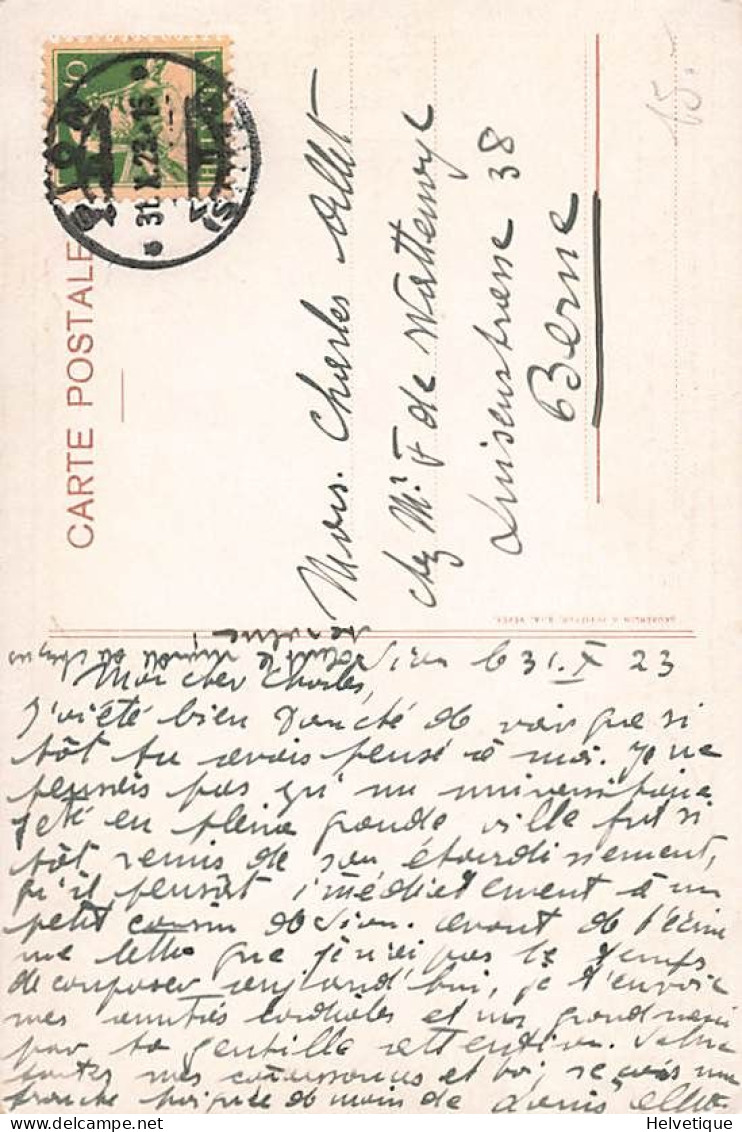 10
HELVETIA
SION
31.X.23.-15
CARTE POSTALE
15.-
Mons. Charles Allet
chez Mr. F de Wattenwyl
Luisenstrasse 38
Berne
SÄUBERLIN & PFEIFFER, S.A., VEVEY
Sion le 31. X 23
Mon cher Charles,
J'ai été bien touché de voir que si
tôt tu avais pensé à moi. Je ne
pensais pas qu'un universitaire
jeté en pleine grande ville fut si
tôt remis de son étourdissement,
qu'il pensât imédiatement à un
petit cousin de Sion. Avant de t'écrire
une lettre que je n'ai pas le temps
de composer aujourd'hui, je t'envoie
mes amitiés cordiales et un grand merci
par ta gentille attention. Salue
toutes mes et toi, reçois une
franche poignée de main de Louis Allet.
tout le monde
Helvetique